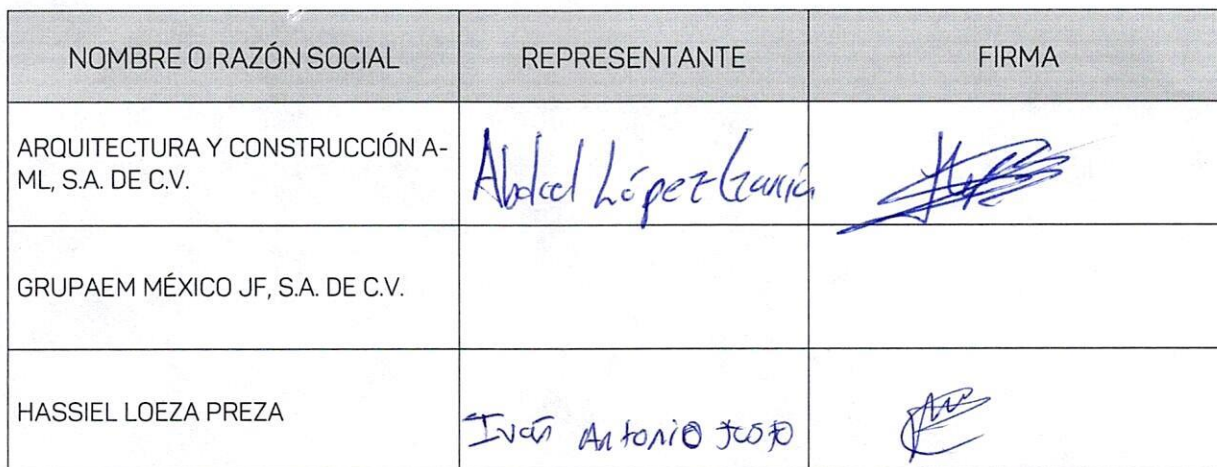 NOMBRE O RAZÓN SOCIAL REPRESENTANTE FIRMA
ARQUITECTURA Y CONSTRUCCIÓN A-
ML, S.A. DE C.V.
López García
GRUPAEM MÉXICO JF, S.A. DE C.V.
HASSIEL LOEZA PREZA
Iván Antonio